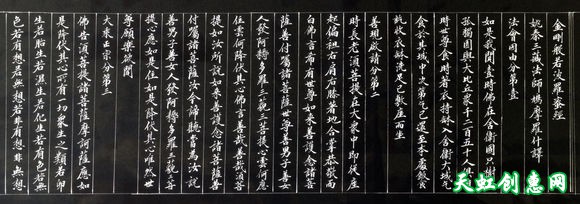 金剛般若波羅蜜經
姚秦三藏法師鳩摩羅什譯
法會因由分第壹
如是我聞壹時佛在舍衛國只樹給
孤獨園與大比丘眾千二百五十人俱
爾時世尊食時著衣持缽入舍衛大城乞
食於其城中次第乞已還至本處飯食
訖收衣缽洗足已敷座而坐
善現啟請分第二
時長老須菩提在大眾中即從座
起偏袒右肩右膝著地合掌恭敬而
白佛言希有世尊如來善護念諸菩
薩善付囑諸菩薩世尊善男子善女
人發阿耨多羅三藐三菩提心雲何應
住雲何降伏其心佛言善哉善哉須菩
提如汝所說如來善護念諸菩薩善
付囑諸菩薩汝今諦聽當為汝說
善男子善女人發阿耨多羅三藐三菩
提心應如是住如是降伏其心唯然世
尊願樂欲聞
大乘正宗分第三
佛告須菩提諸菩薩摩訶薩應如
是降伏其心所有一切眾生之類若卵
生若胎生若濕生若化生若有色若無
色若有想若無想若非有想非無想
天虹创惠网